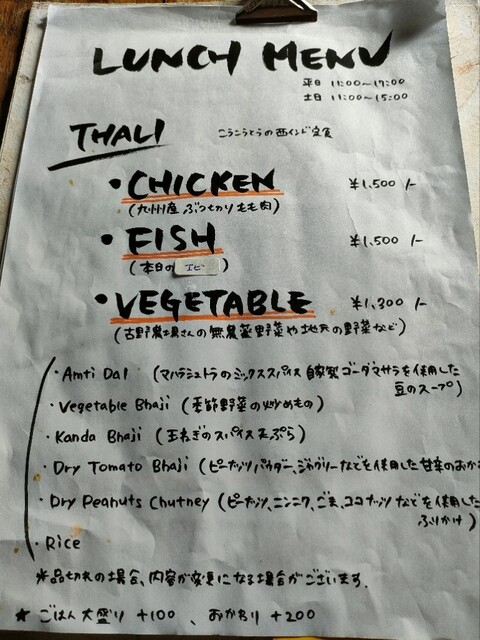 LUNCH MENU
平日 11:00〜17:00
土日 11:00〜15:00
THALI こうこうとうの西インド定食
・CHICKEN ¥1,500 /-
(九州産 ぶつ切りもも肉)
・FISH ¥1,500 /-
(本日の エビ )
・VEGETABLE ¥1,300 /-
(古野農場さんの無農薬野菜や地元の野菜など)
・Amti Dal (マハラシュトラのミックススパイス 自家製ゴーダマサラを使用した
豆のスープ)
・Vegetable Bhaji (季節野菜の炒めもの)
・Kanda Bhaji (玉ねぎのスパイス天ぷら)
・Dry Tomato Bhaji (ピーナッツパウダー、ジャグリーなどを使用した甘辛のおか
・Dry Peanuts Chutney (ピーナッツ、ニンニク、ごま、ココナッツなどを使用した
ふりかけ)
・Rice
※品切れの場合、内容が変更になる場合がございます。
★ ごはん大盛り +100 、おかわり +200